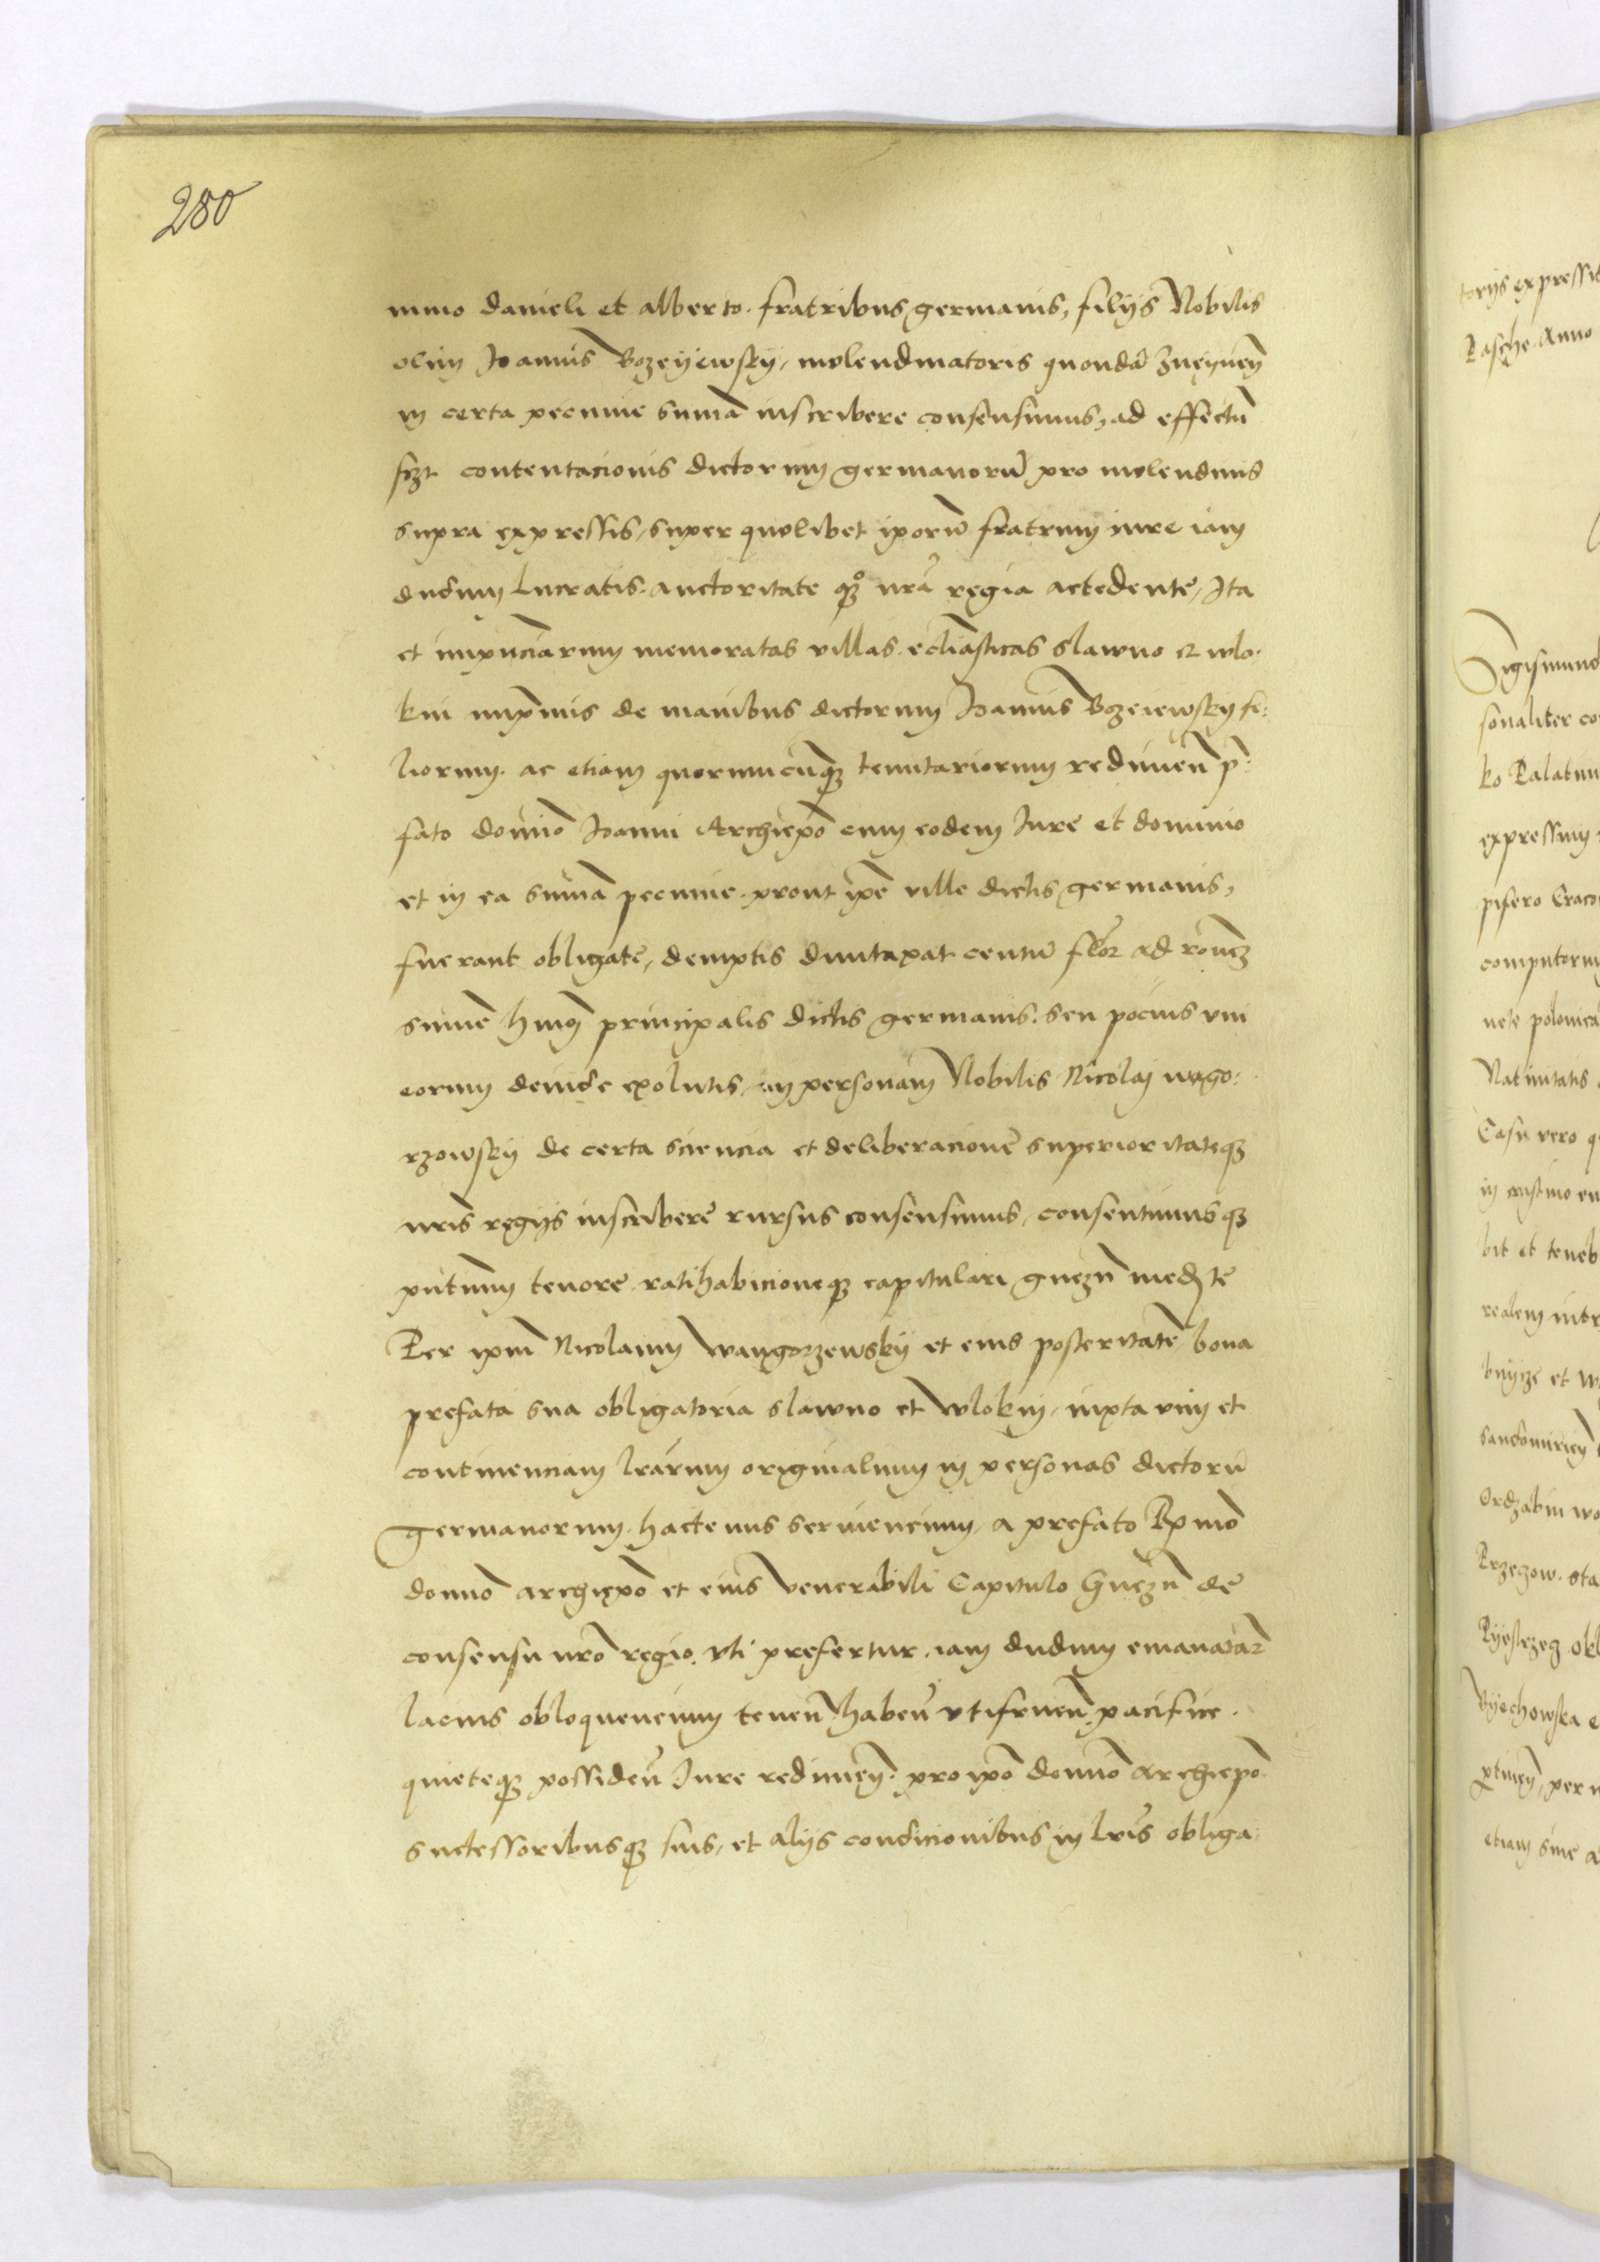 280
nimo danieli et alberto fratribus germanis, filijs Nobilis
olim Joannis Bozeyewsky, molendinatoris quondā Zneynen̄
in certa pecunie sum̄a inscribere consensimus, ad effectū
scz contentacionis dictorum germanorū pro molendinis
supra expressis, super quolibet ip̄orū fratrum jure iam
dudum lucratis, auctoritate qͦꝫ nr̄a regia accedente, Ita
et impn̄ciarum memoratas villas ecli̅asticas Slawno et wlo-
kni imp̄mis de manibus dictorum Joannis Bozeiewsky fi-
liorum, ac etiam quorumcūqꝫ tenutariorum redimen̄ p̄-
fato domīo Joanni Archiep̄o cum eodem Jure et dominio
et in ea sum̄a pecunie, prout ip̄e ville dictis germanis,
fuerant obligate, demptis duntaxat centū flor ad rōnem
sum̄e hm̄oī principalis dictis germanis, seu pocius vni
eorum deinde exolutis, in personam Nobilis Nicolaj wago-
rzowsky de certa sciencia et deliberacione superioritateqꝫ
nr̄is regijs inscribere rursus consensimus, consentimusqꝫ
pn̄tium tenore, ratihabicioneqꝫ capitulari gnezn̄ med̄te
Per ip̄m Nicolaum wangorzewsky et eius posteritatē bona
prefata sua obligatoria slawno et wlokni, iuxta vim et
continenciam lr̄arum originalium in personas dictorū
germanorum hactenus serviencium, a prefato R̄pmo
domno archiep̄o et eius venerabili Capitulo Gnezn̄ de
consensu nr̄o regio, vti prefertur, iam dudum emanatar
lacius obloquencium tenen̄ haben̄ vtifruen̄ pacifice
quieteqꝫ possiden̄ Jure redimen̄ pro ip̄o domno Archiep̄o
successoribusqꝫ suis, et alijs condicionibus in lr̄is obliga
torijs expressis
Pasche Anno
Sigismund
sonaliter co
ko Palatin
expressum
pifero Craco
computorum
nete polonica
Natiuitatis
Casu vero q
in crastino
bit et teneb
realem intr
et w
Sandomirien̄
wo
Przegow
Vyechowska e
ptinen̄, per
etiam sine a